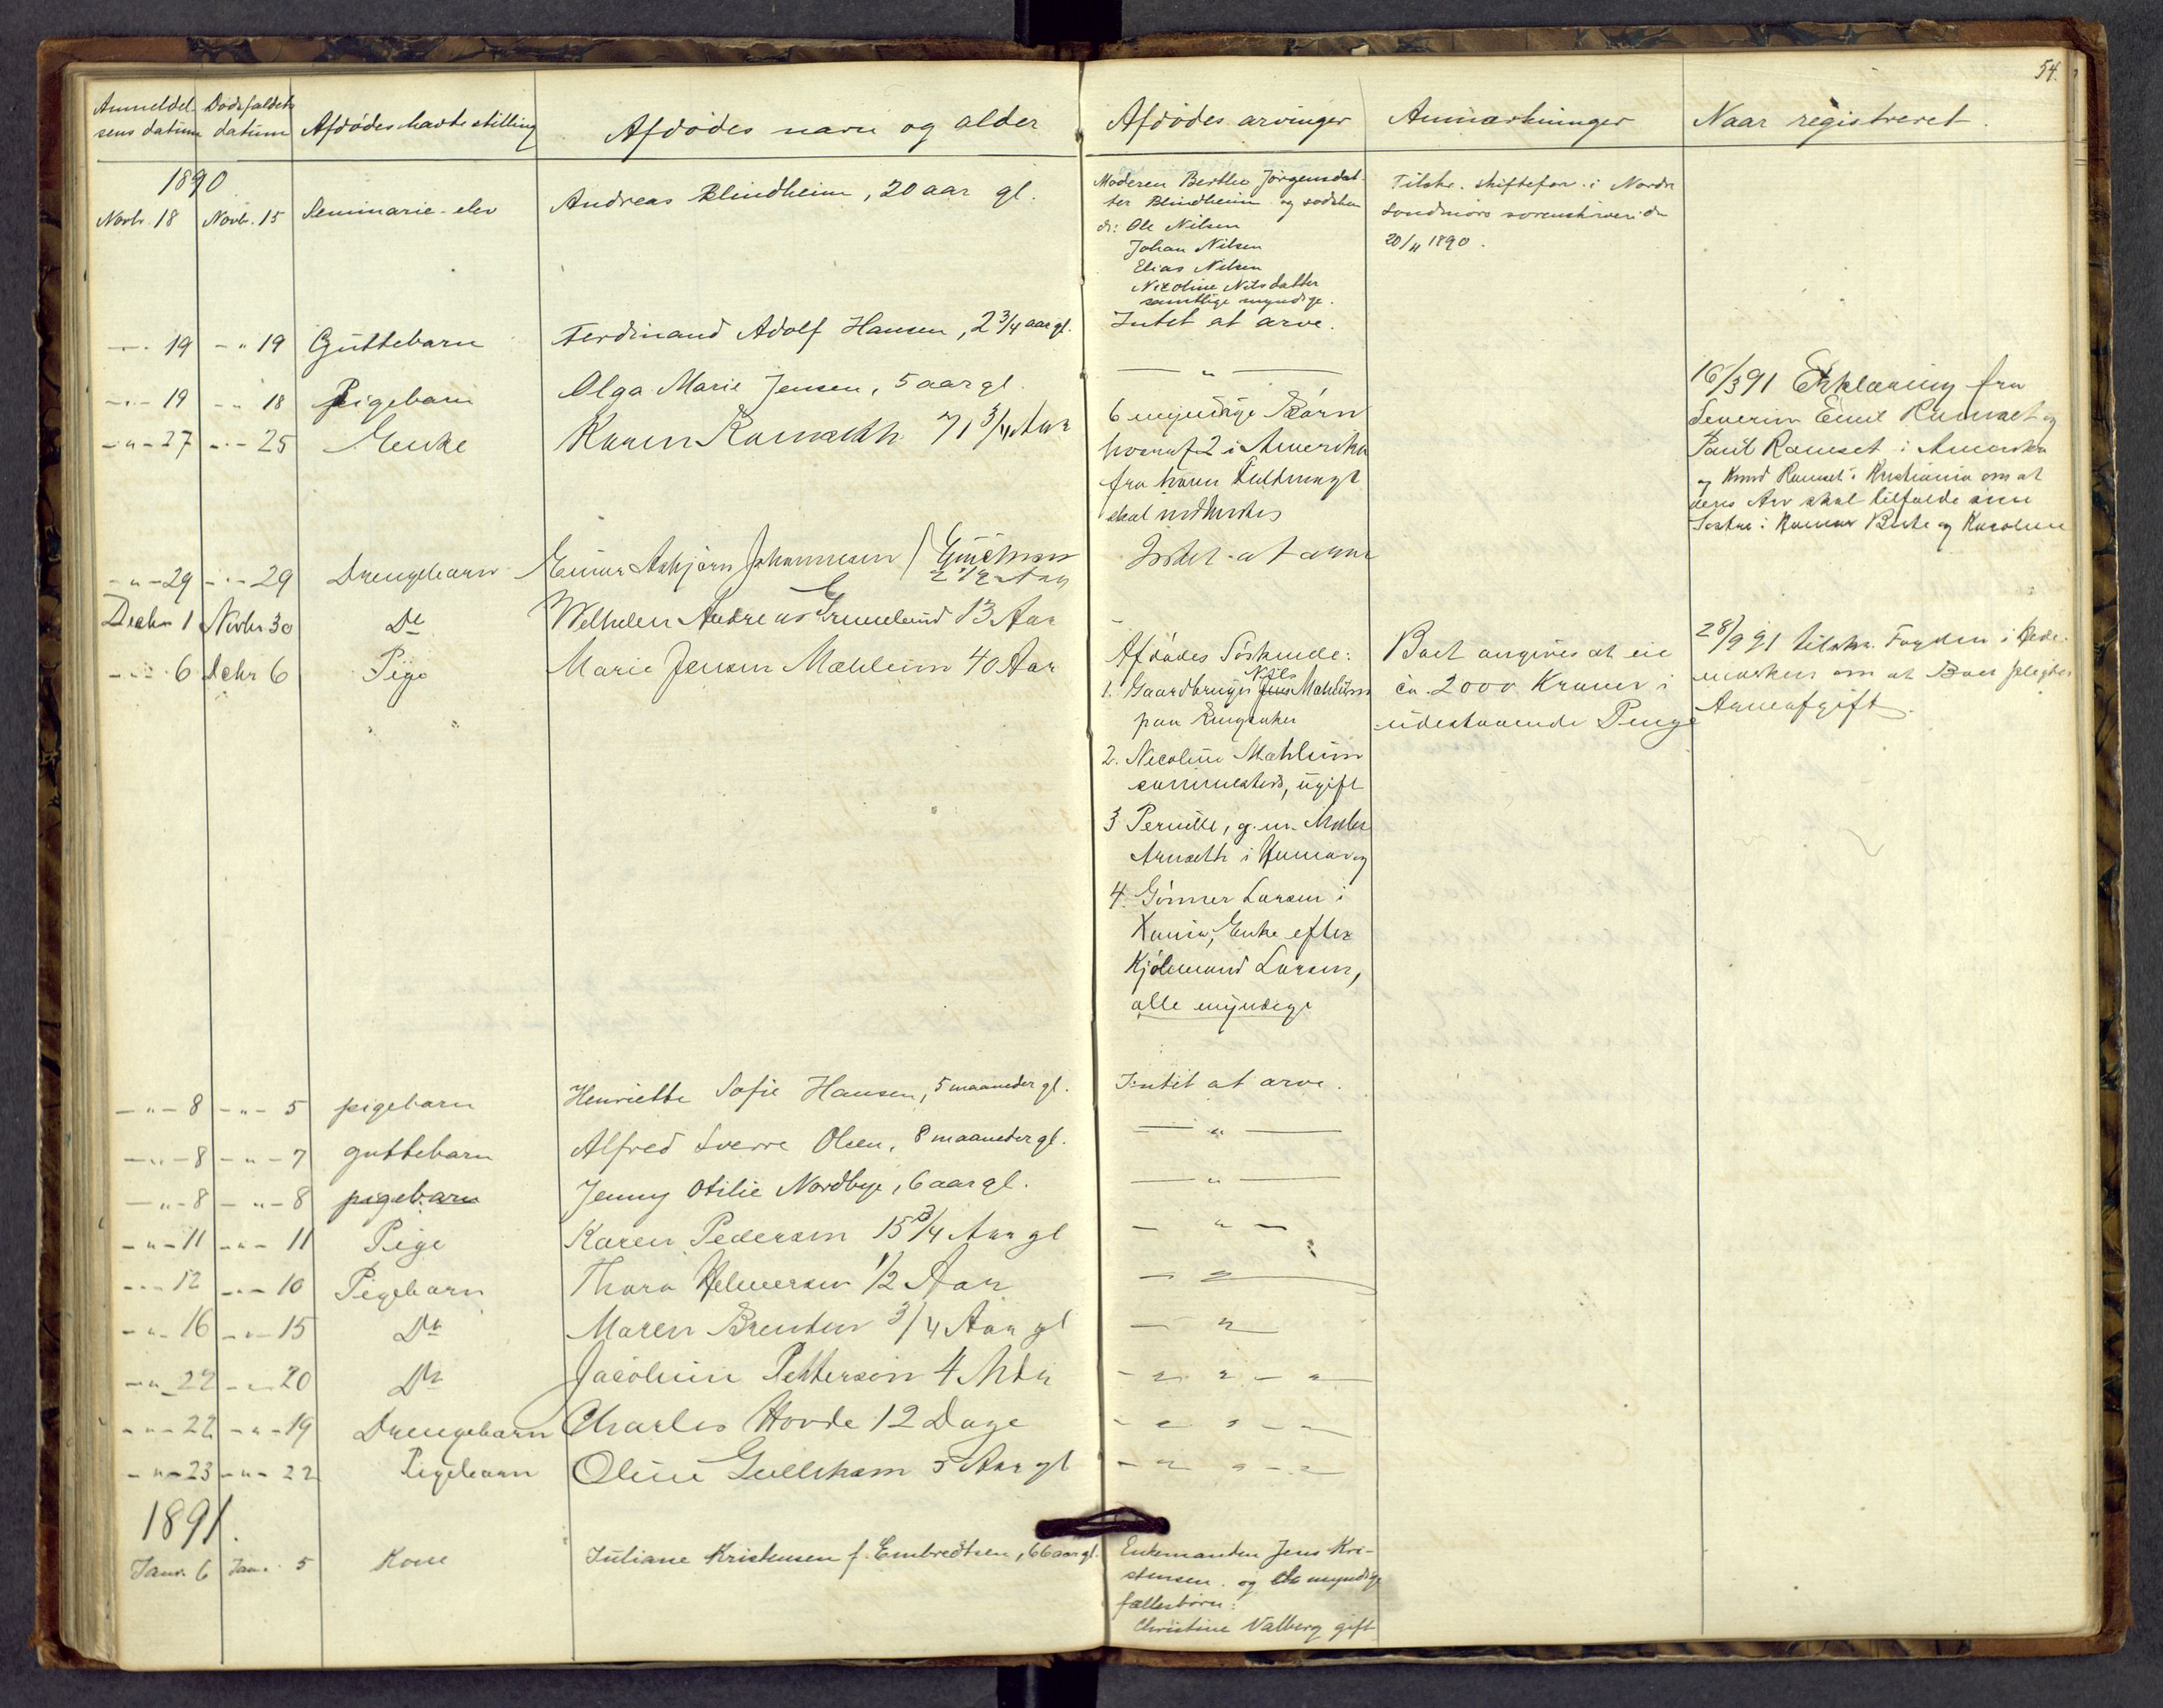 54.
Anmeldel- Dødsfaldets
sens datum datum Afdødes havte stilling Afdødes navn og alder Afdødes arvinger Anmærkninger Naar registreret.
1890
Novbr. 18 Novb. 15 Seminarie-elev Andreas Blindheim, 20 aar gl.
Moderen Berthe Jørgensdat-
ter Blindheim og sødsken
de: Ole Nilsen
Johan Nilsen
Elias Nilsen
Nicoline Nilsdatter
samtlige myndige.
Tilskr. skiftefor. i Nordre
Søndmørs sorenskriveri de
20/11 1890.
—"— 19 —"— 19 Guttebarn Ferdinand Adolf Hansen, 2 3/4 aar gl. Intet at arve.
—"— 19 —"— 18 Pigebarn Olga Marie Jensen, 5 aar gl. —"—
—"— 27 —"— 25 Enke Karen Ramseth 71 3/4 Aar
6 myndige Børn
hvoraf 2 i Amerika
fra hvem Fuldmagt
skal indhentes
16/3 91 Erklæring fra
Severin Emil Ramset og
Paul Ramset i Amerika
og Knud Ramset i Kristiania om at
deres Arv skal tilfalde
—"— 29 —"— 29 Drengebarn Einar Asbjørn Johannesen 2 1/2 Aar Intet at arve
Decbr 1 Novbr 30 Do Wilhelm Andreas Grunelund 13 Aar
—"— 6 Decbr 6 Pige Marie Jensen Mæhlum 40 Aar
Afdødes Søskende:
1. Gaardbruger Nils Mæhlum
paa Ringsaker
2. Nicoline Mæhlum
sammesteds, ugift
3 Pernille, g.m.
Arnseth i Hamar og
4. Gunner Larsen i
Xania, Enke efter
Kjøbmand Larsen,
alle myndige
Boet angives at eie
ca. 2000 Kroner i
udestaaende Penge
28/2 91 tilskr. Fogden i Hede-
marken om at Boet pligter
Arveafgift.
—"— 8 —"— 5 pigebarn Henriette Sofie Hansen, 5 maaneder gl. Intet at arve.
—"— 8 —"— 7 guttebarn Alfred Sverre Olsen, 8 maaneder gl. —"—
—"— 8 —"— 8 pigebarn Jenny Otilie Nordbye, 6 aar gl. —"—
—"— 11 —"— 11 Pige Karen Pedersen 15 3/4 Aar gl —"—
—"— 12 —"— 10 Pigebarn Thora Helmersen 1/2 Aar —"—
—"— 16 —"— 15 Do Maren Brenden 3/4 Aar gl —"—
—"— 22 —"— 20 Do Jacobine Pettersen 4 Mdr —"—
—"— 22 —"— 19 Drengebarn Charles Hovde 12 Dage —"—
—"— 23 —"— 22 Pigebarn Oline Gullikson 5 Aar gl —"—
1891.
Janr. 6 Janr. 5 Kone Juliane Kristensen f. Embretsen, 66 aar gl.
Enkemanden Jens Kri-
stensen og myndige
fællesbørn:
Christine Valberg gift